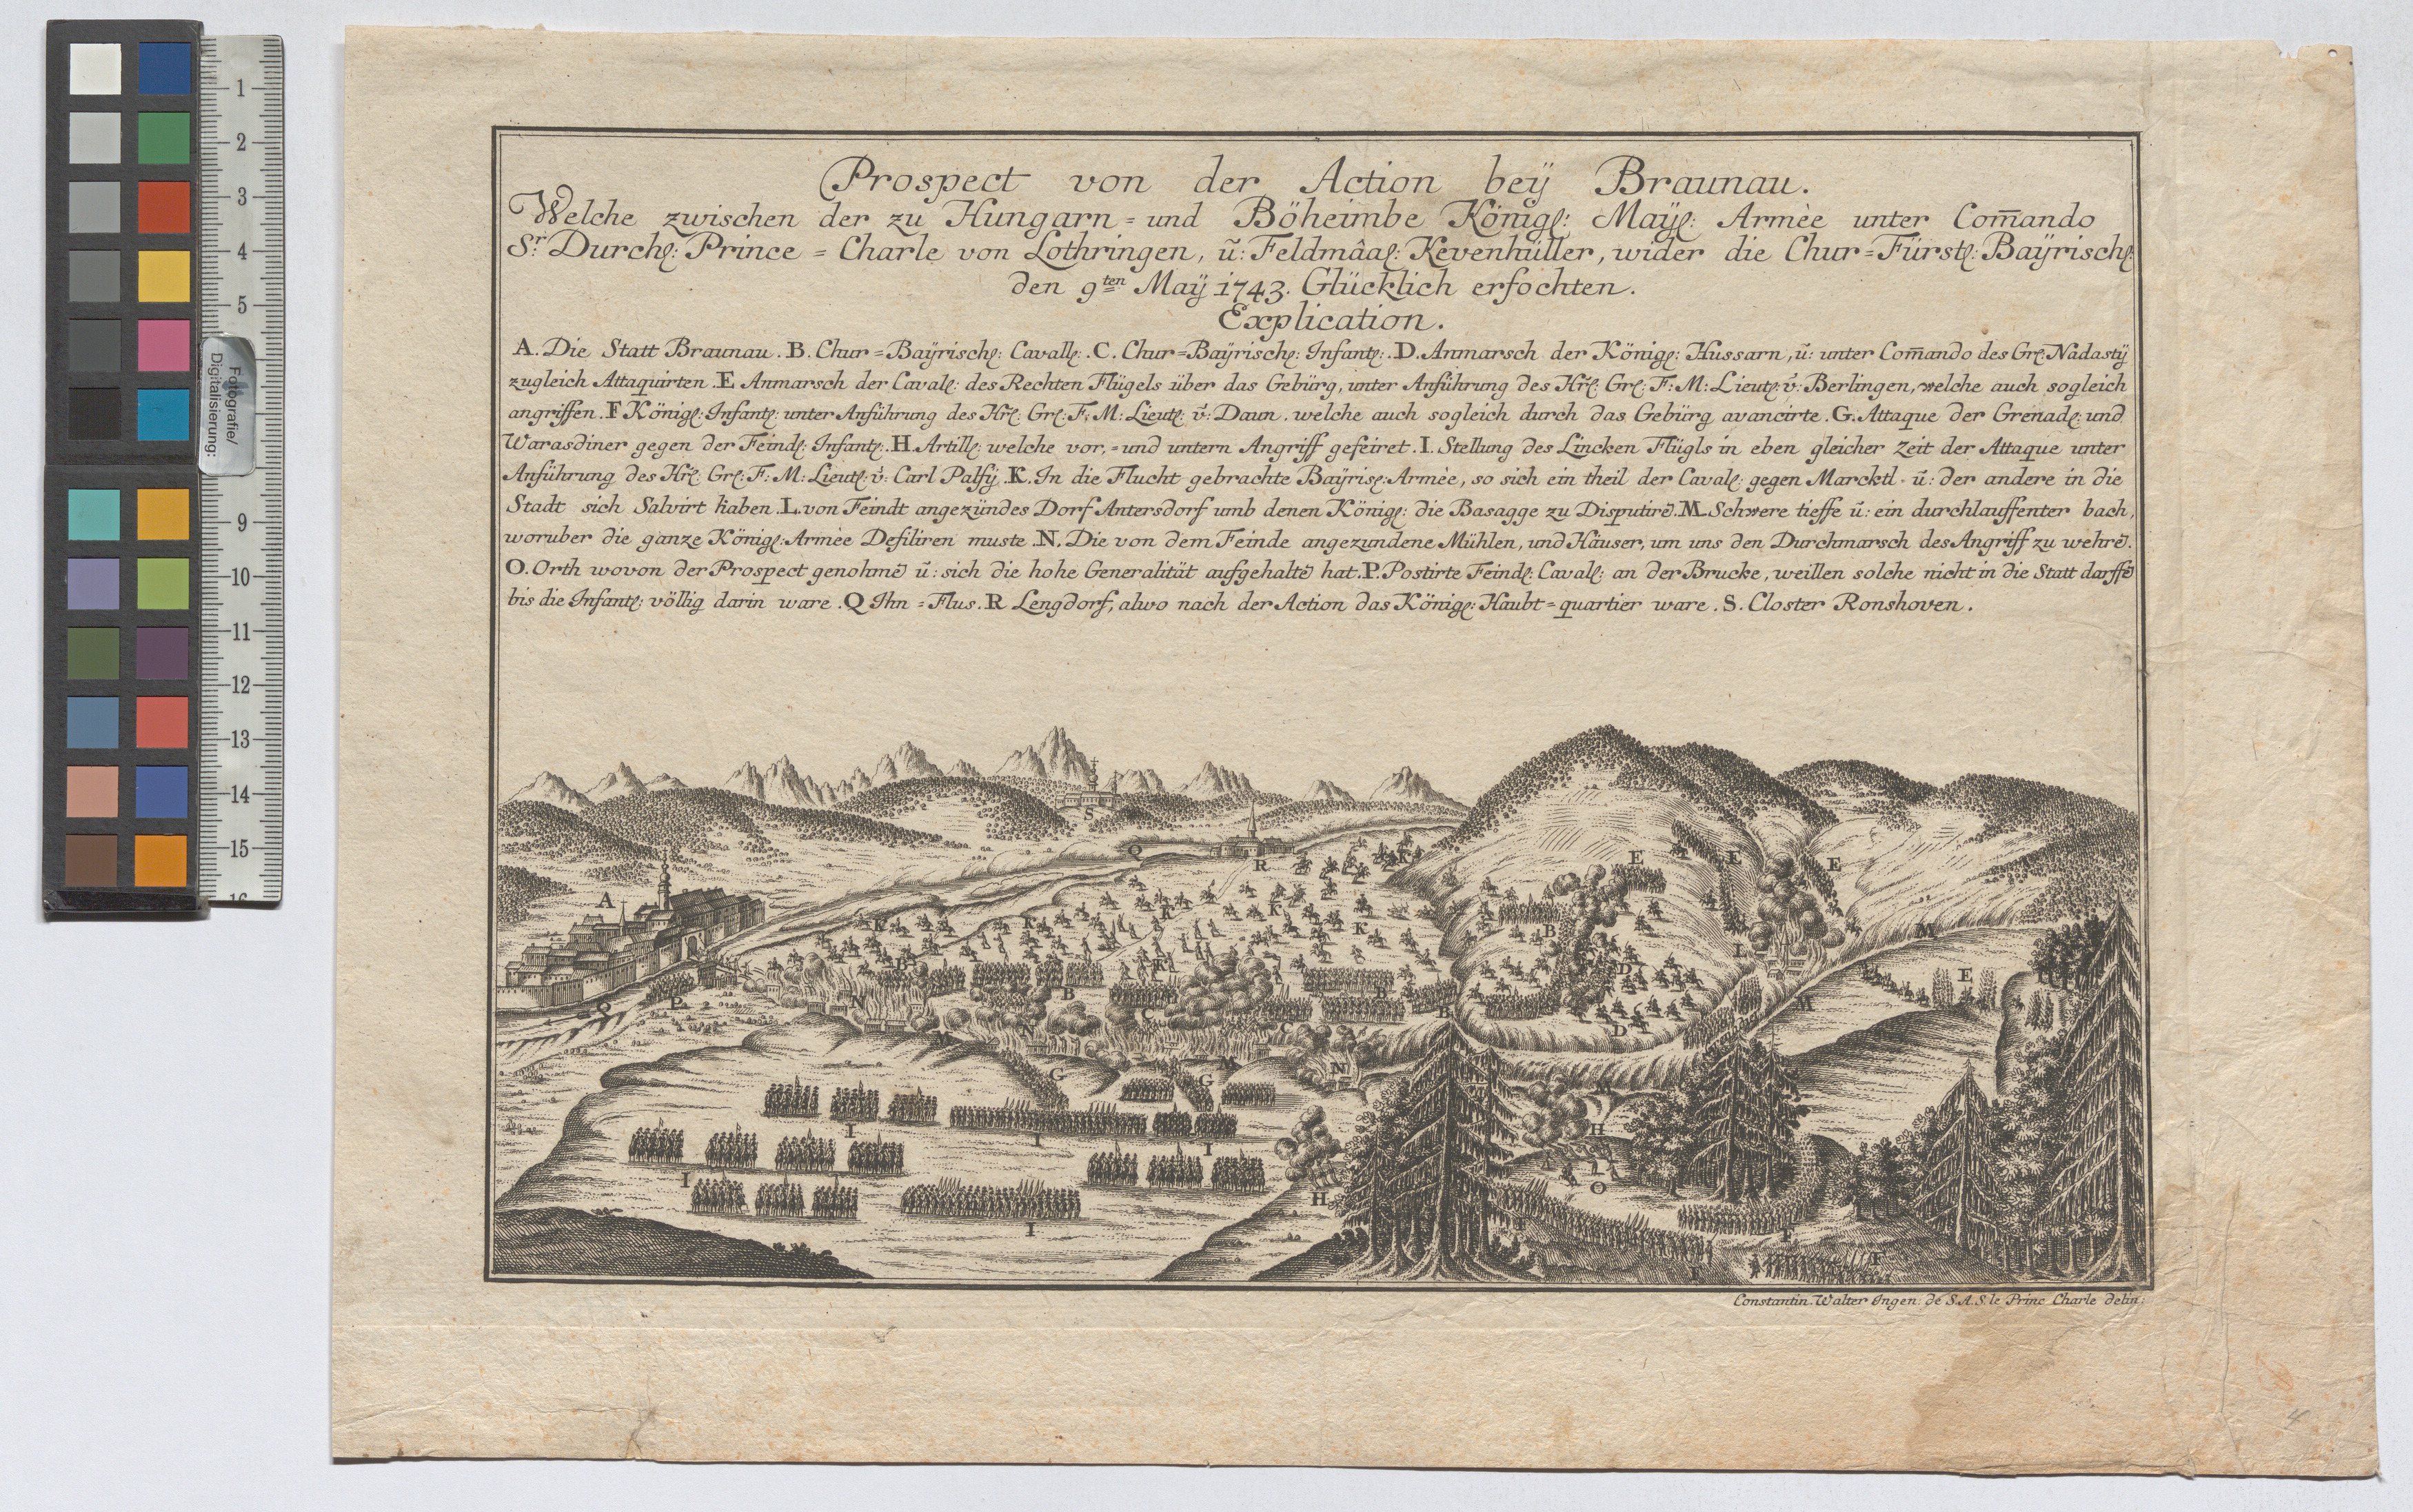 Prospect von der Action beÿ Braunau.
Welche zwischen der zu Hungarn = und Böheimbe Königl: Maÿl: Armèe unter Com̄ando
Sr. Durchl: Prince = Charle von Lothringen, ũ: Feldmâal: Kevenhüller, wider die Chur = Fürstl: Baÿrischl:
den 9ten Maÿ 1743. Glücklich erfochten.
Explication.
A. Die Statt Braunau. B. Chur = Baÿrischl: Cavall: . C. Chur = Baÿrischl: Infantl: . D. Anmarsch der Königl: Hussarn, ũ: unter Com̄ando des Grl: Nadastÿ
zugleich Attaquirten. E Anmarsch der Caval: des Rechten Flügels über das Gebürg, unter Anführung des Hrl: Grl: F: M: Lieutl: v: Berlingen, welche auch sogleich
angriffen. F Königl: Infantl: unter Anführung des Hrl: Grl: F: M: Lieutl: v: Daun. welche auch sogleich durch das Gebürg avancirte. G. Attaque der Grenadl: und
Warasdiner gegen der Feindl: Infantl: . H. Artille: welche vor, = und untern Angriff gefeiret. I. Stellung des Lincken Flügls in eben gleicher Zeit der Attaque unter
Anführung des Hrl: Grl: F: M: Lieutl: v: Carl Palfÿ. K. In die Flucht gebrachte Baÿrisl: Armèe, so sich ein theil der Caval: gegen Marcktl. ũ: der andere in die
Stadt sich Salvirt haben. L. von Feindt angezündes Dorf Antersdorf umb denen Königl: die Basagge zu Disputirē. M. Schwere tieffe ũ: ein durchlauffenter bach,
woruber die ganze Königl: Armèe Defiliren muste. N. Die von dem Feinde angezundene Mühlen, und Häuser, um uns den Durchmarsch des Angriff zu wehrē.
O. Orth wovon der Prospect genohmē ũ: sich die hohe Generalität aufgehaltē hat. P. Postirte Feindl: Caval: an der Brucke, weillen solche nicht in die Statt darffē
bis die Infantl: völlig darin ware. Q Ihn = Flus. R Lengdorf, alwo nach der Action das Königl: Haubt = quartier ware. S. Closter Ronshoven.
S
Q
R
K
E
E
E
A
K
K
K
K
K
B
M
B
K
L
D
N
P
B
B
E
Q
C
B
M
N
C
D
M
G
G
N
M
I
I
I
H
I
H
O
I
F
F
F
F
Constantin Walter Ingen: de S.A.S. le Princ Charle delin:
4
Fotografie/
Digitalisierung:
1
2
3
4
5
9
10
11
12
13
14
15
16